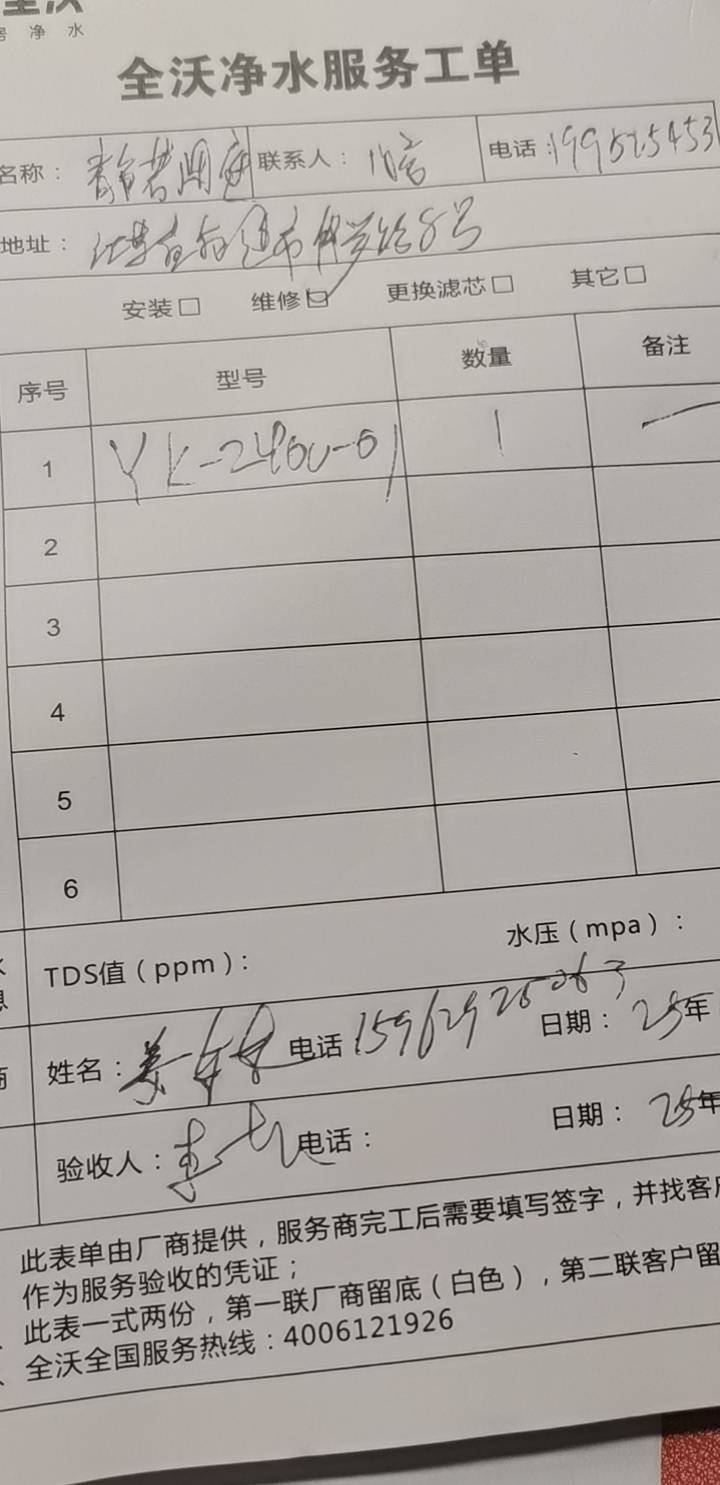 房净水
全沃净水服务工单
名称： 联系人： 电话：199525453
地址： 江苏省南通市 路8号
安装☐ 维修☑ 更换滤芯☐ 其它☐
序号 型号 数量 备注
1 YK-2400-01 1 —
2
3
4
5
6
TDS值（ppm）： 水压（mpa）：
姓名：姜 电话 15962925063 日期：25年
验收人： 电话： 日期：25年
此表单由厂商提供，服务商完工后需要填写签字，并找客户
作为服务验收的凭证；
此表一式两份，第一联厂商留底（白色），第二联客户留
全沃全国服务热线：4006121926